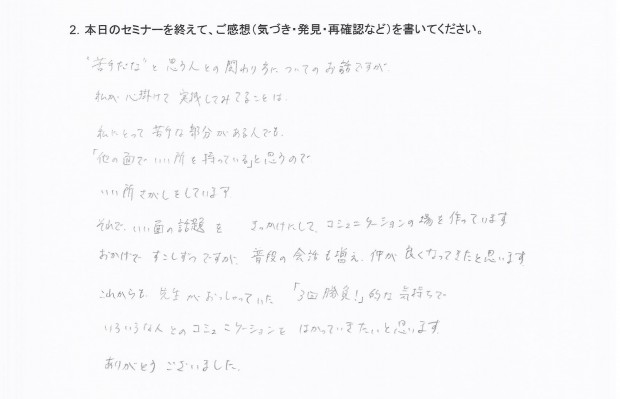 2. 本日のセミナーを終えて、ご感想（気づき・発見・再確認など）を書いてください。
"苦手だな"と思う人との関わり方についてのお話ですが、
私が心掛けて実践してみてることは、
私にとって苦手な部分がある人でも、
「他の面でいい所を持っている」と思うので
いい所さがしをしています
それで、いい面の話題を きっかけにして、コミュニケーションの場を作っています
おかげですこしずつですが、普段の会話も増え、仲が良くなってきたと思います
これからも、先生がおっしゃっていた「3回勝負!」的な気持ちで
いろいろな人とのコミュニケーションをはかっていきたいと思います。
ありがとうございました。